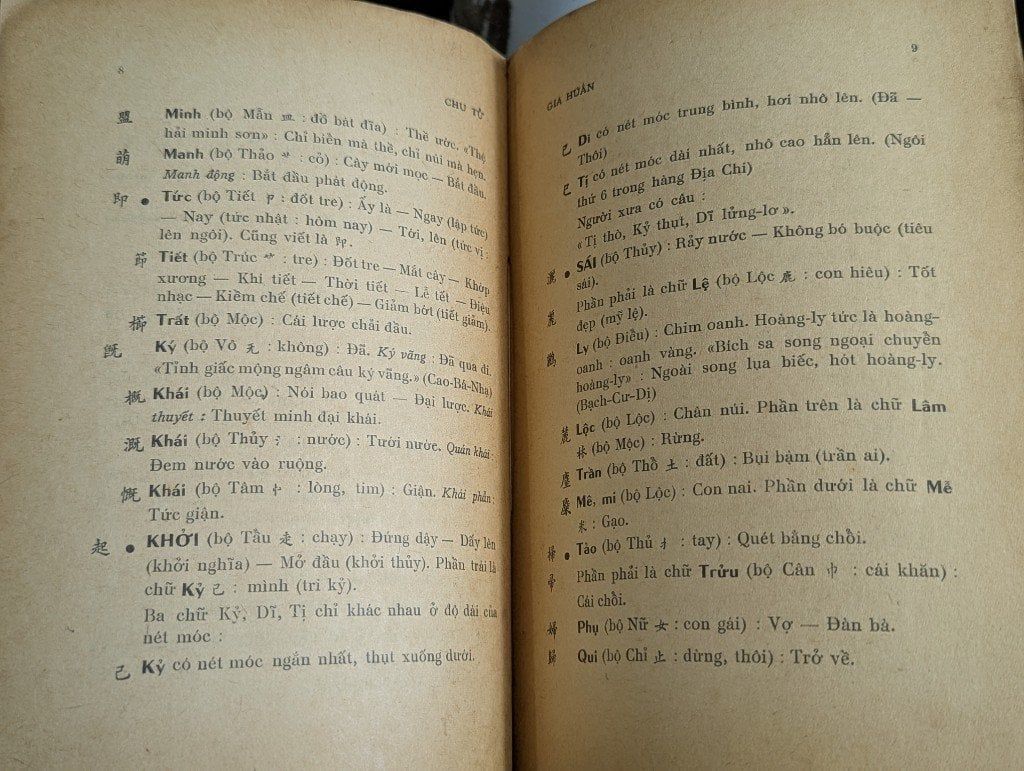 8
CHU TỬ
盟 Minh (bộ Mẫn 皿 : đồ bát đĩa) : Thề ước. «Thệ
hải minh sơn» : Chỉ biển mà thề, chỉ núi mà hẹn.
萌 Manh (bộ Thảo 艹 : cỏ) : Cây mới mọc — Bắt đầu.
Manh động : Bắt đầu phát động.
即 • Tức (bộ Tiết 卩 : đốt tre) : Ấy là — Ngay (lập tức)
— Nay (tức nhật : hôm nay) — Tới, lên (tức vị :
lên ngôi). Cũng viết là 卽.
節 Tiết (bộ Trúc ⺮ : tre) : Đốt tre — Mắt cây — Khớp
xương — Khi tiết — Thời tiết — Lễ tết — Điệu
nhạc — Kiềm chế (tiết chế) — Giảm bớt (tiết giảm).
櫛 Trất (bộ Mộc) : Cái lược chải đầu.
既 Ký (bộ Vô 无 : không) : Đã. Ký vãng : Đã qua đi.
«Tỉnh giấc mộng ngâm câu ký vãng.» (Cao-Bá-Nhạ)
概 Khái (bộ Mộc) : Nói bao quát — Đại lược. Khái
thuyết : Thuyết minh đại khái.
溉 Khái (bộ Thủy 氵 : nước) : Tưới nước. Quán khái :
Đem nước vào ruộng.
慨 Khái (bộ Tâm 忄 : lòng, tim) : Giận. Khái phẫn :
Tức giận.
起 • KHỞI (bộ Tẩu 走 : chạy) : Đứng dậy — Dấy lên
(khởi nghĩa) — Mở đầu (khởi thủy). Phần trái là
chữ Kỷ 己 : mình (tri kỷ).
Ba chữ Kỷ, Dĩ, Tị chỉ khác nhau ở độ dài của
nét móc :
己 Kỷ có nét móc ngắn nhất, thụt xuống dưới.
9
GIA HUẤN
已 Dĩ có nét móc trung bình, hơi nhô lên. (Đã —
Thôi)
巳 Tị có nét móc dài nhất, nhô cao hẳn lên. (Ngôi
thứ 6 trong hàng Địa Chi)
Người xưa có câu :
«Tị thò, Kỷ thụt, Dĩ lửng-lơ».
灑 • SÁI (bộ Thủy) : Rảy nước — Không bó buộc (tiêu
sái).
麗 Phần phải là chữ Lệ (bộ Lộc 鹿 : con hiêu) : Tốt
đẹp (mỹ lệ).
鸝 Ly (bộ Điểu) : Chim oanh. Hoàng-ly tức là hoàng-
oanh : oanh vàng. «Bích sa song ngoại chuyển
hoàng-ly» : Ngoài song lụa biếc, hót hoàng-ly.
(Bạch-Cư-Dị)
麓 Lộc (bộ Lộc) : Chân núi. Phần trên là chữ Lâm
林 (bộ Mộc) : Rừng.
塵 Trần (bộ Thổ 土 : đất) : Bụi bặm (trần ai).
麋 Mê, mi (bộ Lộc) : Con nai. Phần dưới là chữ Mễ
米 : Gạo.
掃 • Tảo (bộ Thủ 扌 : tay) : Quét bằng chổi.
帚 Phần phải là chữ Trửu (bộ Cân 巾 : cái khăn) :
Cái chổi.
婦 Phụ (bộ Nữ 女 : con gái) : Vợ — Đàn bà.
歸 Qui (bộ Chỉ 止 : dừng, thôi) : Trở về.